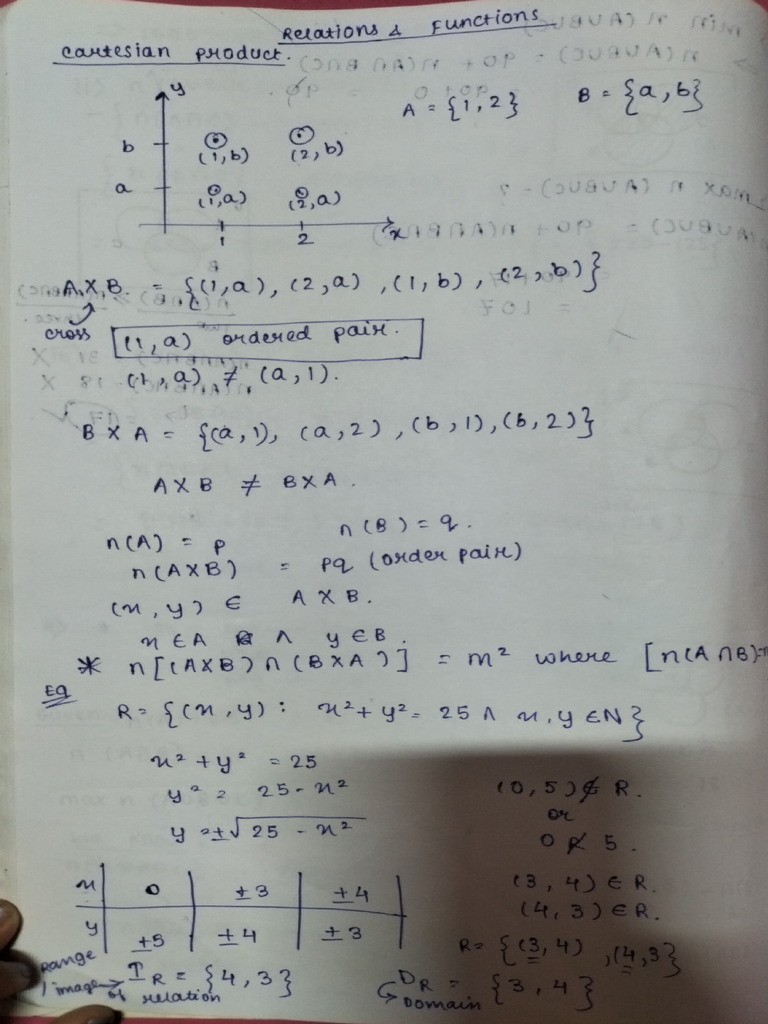 Relations & Functions
Cartesian product.
y
A = {1, 2} B = {a, b}
b (1, b) (2, b)
a (1, a) (2, a)
1 2 x
A X B. = {(1, a), (2, a), (1, b), (2, b)}
cross (1, a) ordered pair.
(1, a) ≠ (a, 1).
B X A = {(a, 1), (a, 2), (b, 1), (b, 2)}
A X B ≠ B X A.
n(A) = p n(B) = q.
n(AXB) = pq (order pair)
(x, y) ∈ A X B.
x ∈ A ∧ y ∈ B.
* n[(AXB) ∩ (BXA)] = m² where [n(A∩B)=
Eq
R = {(x, y) : x² + y² = 25 ∧ x, y ∈ N}
x² + y² = 25
y² = 25 - x²
y = ±√25 - x²
(0, 5) ∉ R.
or
0 R̸ 5.
x 0 ±3 ±4
y ±5 ±4 ±3
(3, 4) ∈ R.
(4, 3) ∈ R.
R = {(3, 4), (4, 3)}
Range / image of relation I_R = {4, 3}
D_R = {3, 4}
Domain